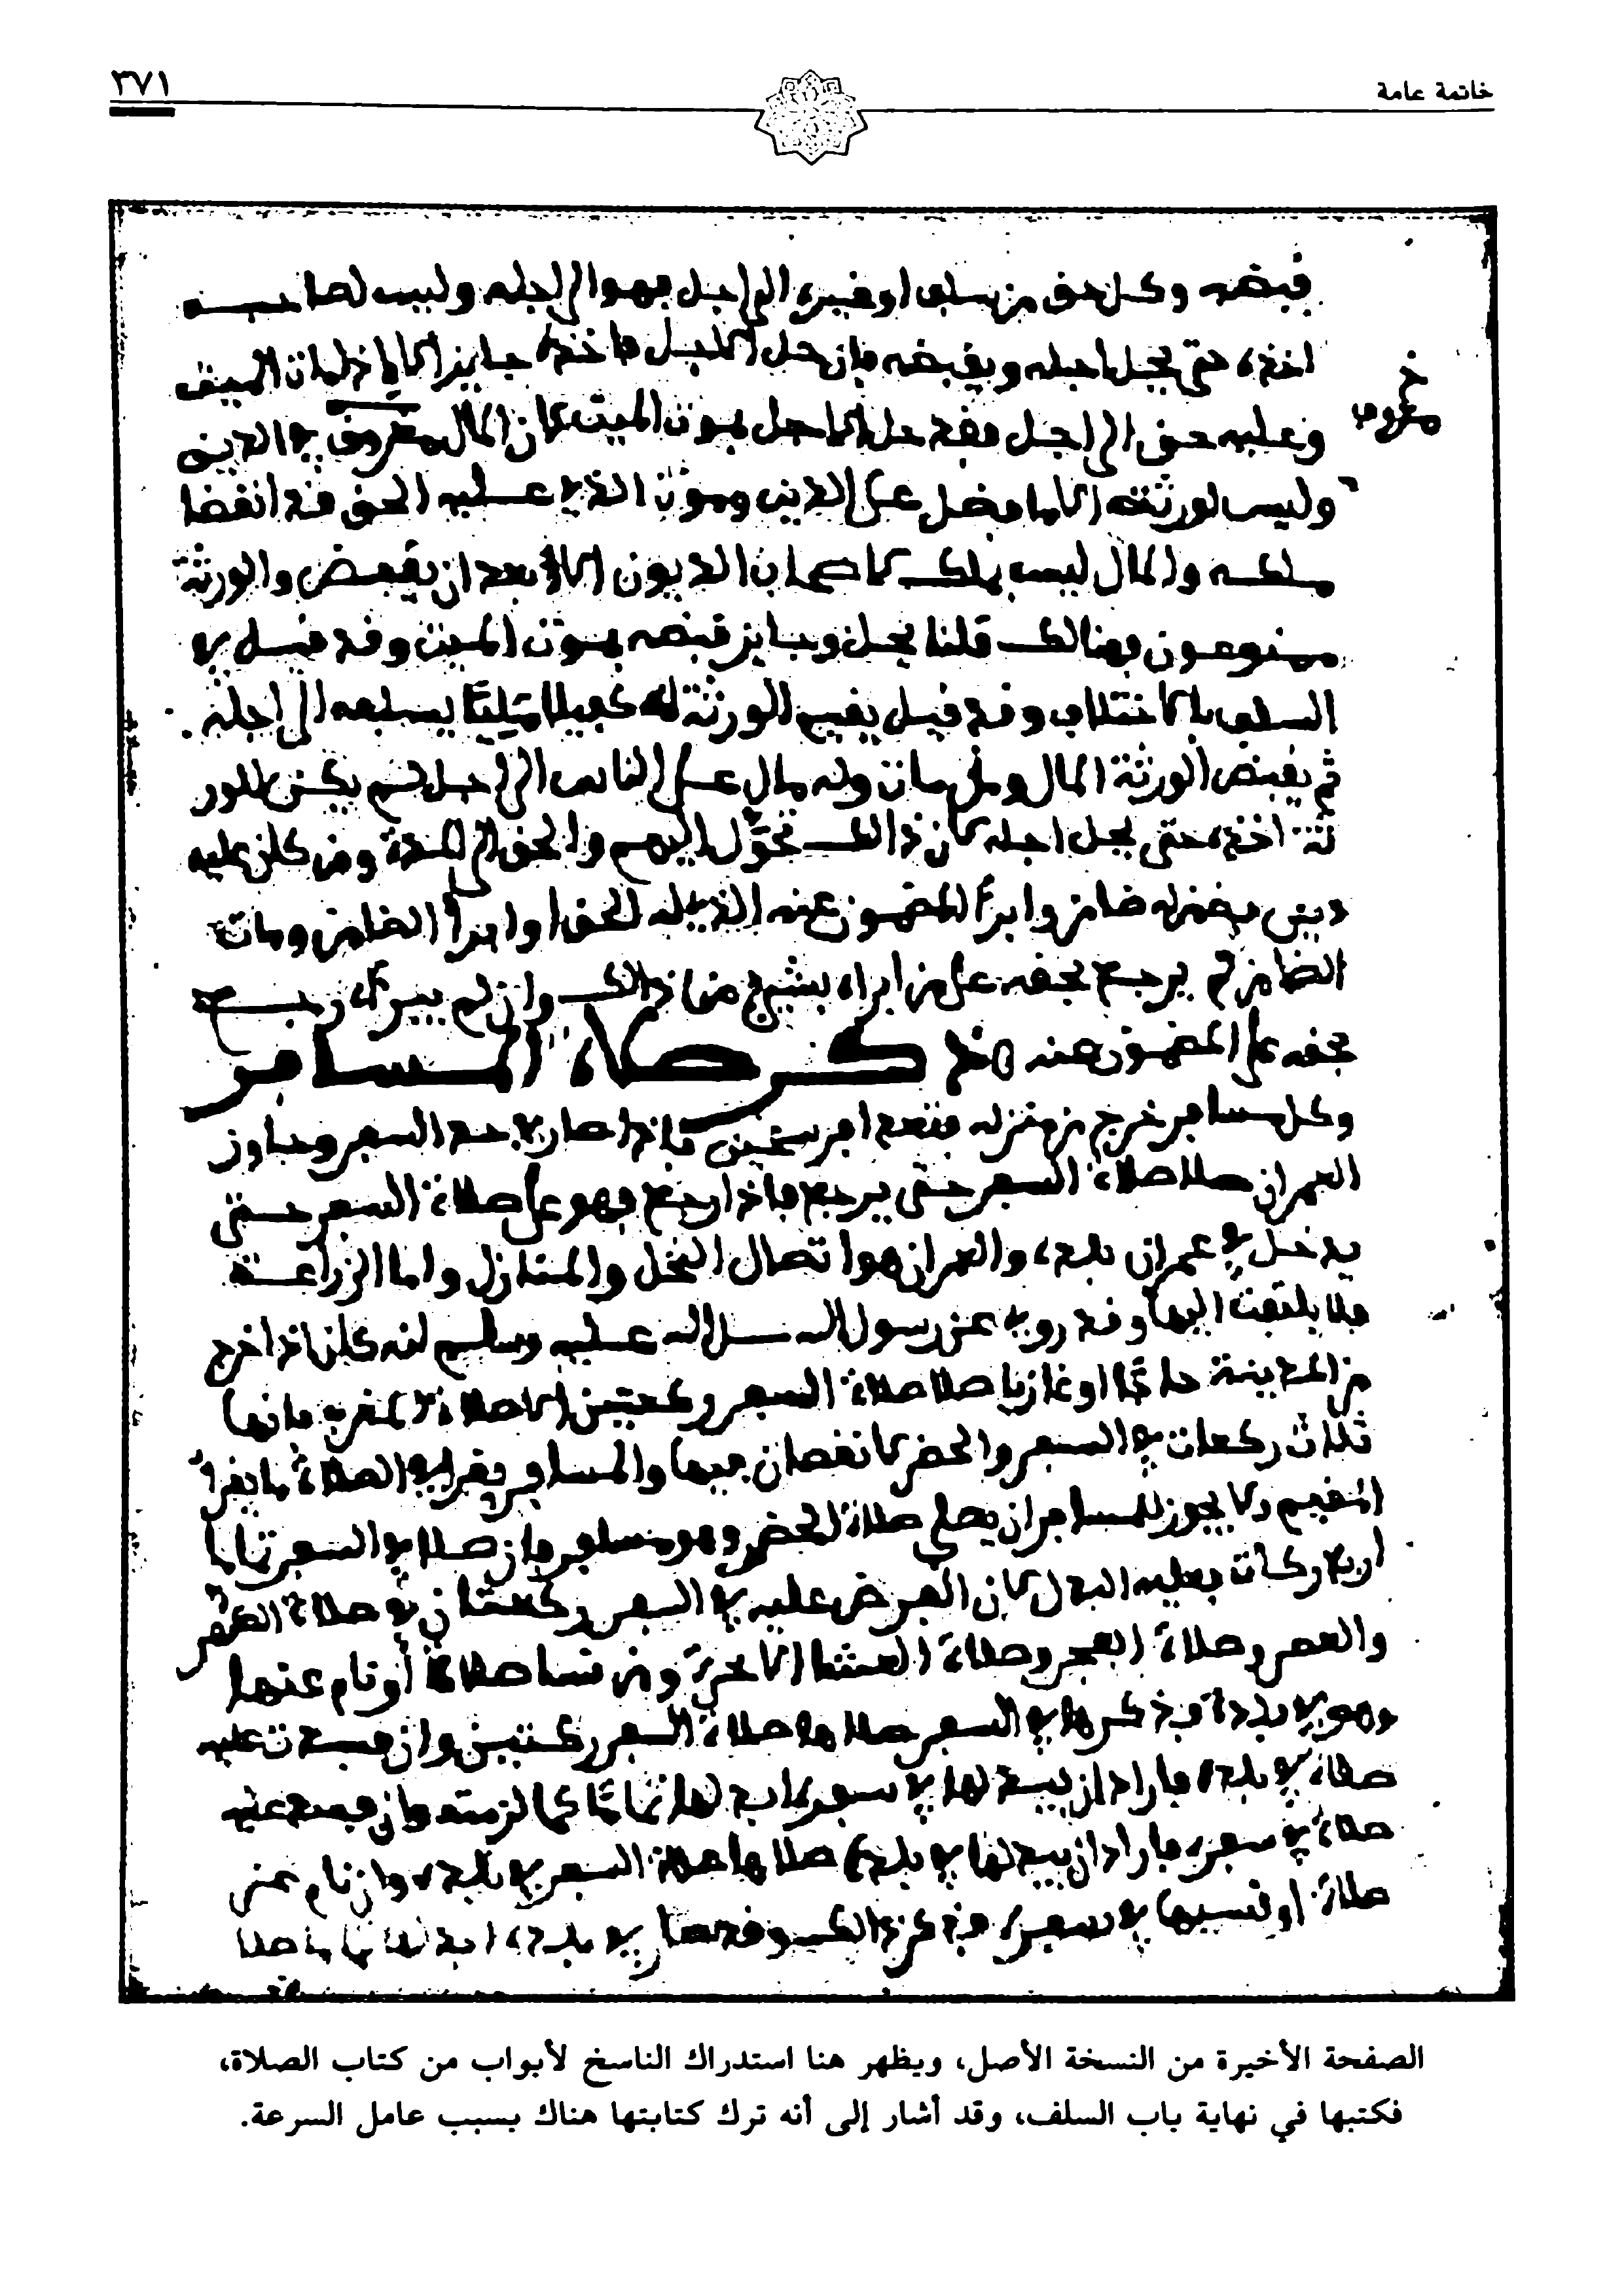 خاتمة عامة
٣٧١
قبضه وكل حق من سلف او غيره الى اجل فهو الى اجله وليس لصاحبه
اخذه حتى يحل اجله ويقبضه فان حل الاجل فاخذه جايز الا اذا مات الميت
وعليه حق الى اجل فقد حل الاجل بموت الميت لان المال معروف في الدين
خ
وليس لورثته الا ما فضل عن الدين وموت الذي عليه الحق قد انقضا
ملكه والمال ليس بملك لاصحاب الديون الا بعد ان يقبض والورثة
ممنوعون فهنالك قلنا يحل وجايز قبضه بموت الميت وقد قيل في
السلف باختلاف وقد قيل يقيم الورثة له كفيلا مليا يسلمه الى اجله
ثم يقبض الورثة المال ومن مات وله مال على الناس الى اجل لم يكن للور
ثة اخذه حتى يحل اجله لان ذالك تحول اليهم والحق الى المدة ومن كان عليه
دين فضمن له ضامن وابرأ المضمون عنه الذي له الحق او ابرأ الضامن ومات
الضامن لم يرجع بحقه على من ابراه بشيء من ذالك وان لم يبره رجع
بحقه على المضمون عنه ذكر صلاة المسافر
وكل مسافر خرج من منزله فتعدا فرسخين فاذا صار في حد السفر وجاوز
العمران صلا صلاة السفر حتى يرجع فاذا رجع فهو على صلاة السفر حتى
يدخل في عمران بلده والعمران هو اتصال النخل والمنازل واما الزراعة
فلا يلتفت اليها وقد روي عن رسول الله صلى الله عليه وسلم انه كان اذا خرج
من المدينة حاجا او غازيا صلا صلاة السفر ركعتين الا صلاة المغرب فانها
ثلاث ركعات في السفر والحضر لا نقصان فيها والمسافر يقرا في الصلاة ما يقرا
المقيم ولا يجوز للمسافر ان يصلي صلاة الحضر وهو مسافر فان صلا في السفر تماما
اربع ركعات فعليه البدل لان الفرض عليه في السفر ركعتان في صلاة الظهر
والعصر وصلاة الفجر وصلاة العشا الاخرة ومن نسا صلاة أو نام عنها
وهو في بلده فذكرها في السفر صلاها صلاة السفر ركعتين وان فسدت عليه
صلاة في بلده فاراد ان يبدلها في سفره ابدلها تماما كما لزمته وان فسدت عليه
صلاة في سفره فاراد ان يبدلها في بلده صلاها صلاة السفر في بلده وان نام عن
صلاة او نسيها في سفره فذكر ذالك وقد صار في بلده
الصفحة الأخيرة من النسخة الأصل، ويظهر هنا استدراك الناسخ لأبواب من كتاب الصلاة،
فكتبها في نهاية باب السلف، وقد أشار إلى أنه ترك كتابتها هناك بسبب عامل السرعة.